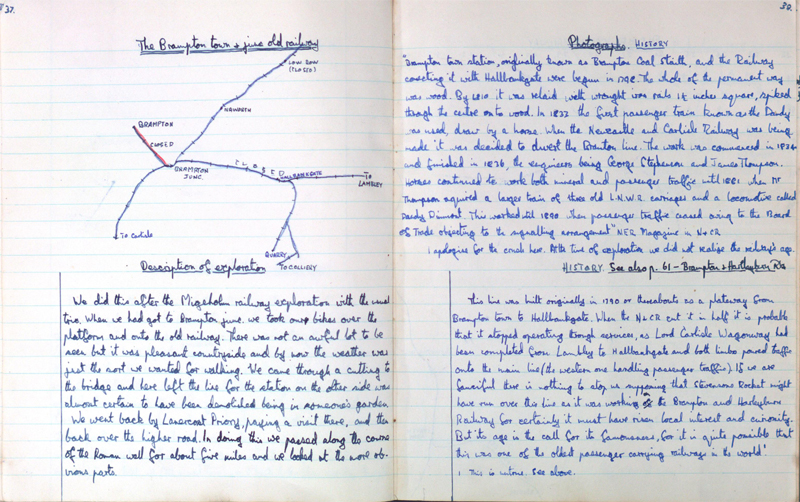 37.
The Brampton town & fine old railway
LOW ROW
(CLOSED)
NAWORTH
BRAMPTON
CLOSED
BRAMPTON
JUNC.
CLOSED
HALLBANKGATE
TO
LAMBLEY
To Carlisle
QUARRY
TO COLLIERY
Description of exploration
We did this after the railway exploration with the usual
trio. When we had got to Brampton junc. we took our bikes over the
platform and onto the old railway. There was not an awful lot to be
seen but it was pleasant countryside and by now the weather was
just the sort we wanted for walking. We came through a cutting to
the bridge and here left the line for the station on the other side was
almost certain to have been demolished being in someone's garden
We went back by Lanercost Priory, paying a visit there, and then
back over the higher road. In doing this we passed along the course
of the Roman wall for about five miles and we looked at the more ob-
vious parts.
38.
Photographs. HISTORY
"Brampton town station, originally known as Brampton Coal Staith, and the Railway
connecting it with Hallbankgate were begun in 1798. The whole of the permanent way
was wood. By 1810 it was relaid with wrought iron rails 1½ inches square, spiked
through the centre onto wood. In 1833 the first passenger train known as the Dandy
was used, drawn by a horse. When the Newcastle and Carlisle Railway was being
made it was decided to divert the Brampton line. The work was commenced in 1834
and finished in 1836, the engineers being George Stephenson and James Thompson.
Horses continued to work both mineral and passenger traffic until 1881 when Mr
Thompson acquired a larger train of three old L.N.W.R. carriages and a locomotive called
Dandy Dinmont. This worked till 1890 when passenger traffic ceased owing to the Board
of Trade objecting to the signalling arrangement" NER Magazine in N&CR
I apologise for the crush here. At the time of exploration we did not realise the railway's age.
HISTORY. See also p. 61 - Brampton & Hartleyburn Rls
This line was built originally in 1790 or thereabouts as a plateway from
Brampton town to Hallbankgate. When the N&CR cut it in half it is probable
that it stopped operating through services, as Lord Carlisle Wagonway had
been completed from Lambley to Hallbankgate and both limbs poured traffic
onto the main line (the western one handling passenger traffic). If we are
fanciful there is nothing to stop us supposing that Stevensons Rocket might
have run over this line as it was working on the Brampton and Hartleyburn
Railway for certainly it must have risen local interest and curiosity.
But its age is the call for its famousness, for it is quite possible that
this was one of the oldest passenger carrying railways in the world¹.
1 This is untrue. See above.